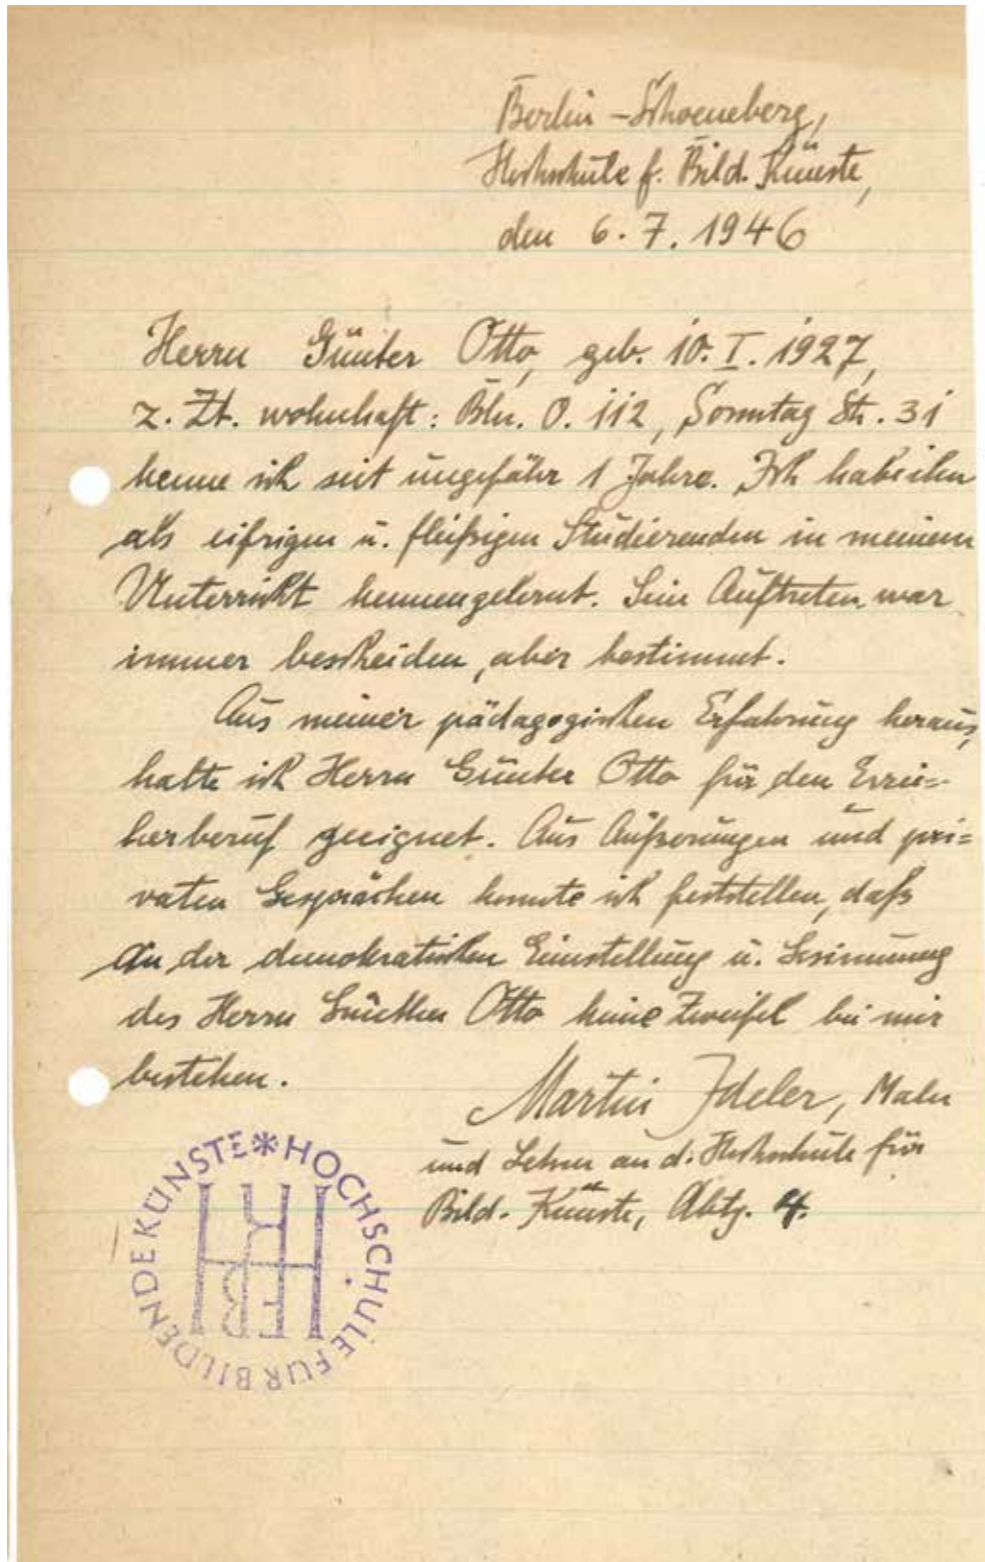 Berlin-Schoeneberg,
Hochschule f. Bild. Künste,
den 6. 7. 1946
Herrn Günter Otto, geb. 10. I. 1927,
z. Zt. wohnhaft: Bln. O. 112, Sonntag Str. 31
kenne ich seit ungefähr 1 Jahre. Ich habe ihn
als eifrigen u. fleißigen Studierenden in meinem
Unterricht kennengelernt. Sein Auftreten war
immer bescheiden, aber bestimmt.
Aus meiner pädagogischen Erfahrung heraus,
halte ich Herrn Günter Otto für den Erzie=
herberuf geeignet. Aus Äußerungen und pri=
vaten Gesprächen konnte ich feststellen, daß
an der demokratischen Einstellung u. Gesinnung
des Herrn Otto keine Zweifel bei mir
bestehen.
Martin Ideler, Maler
und Lehrer an d. Hochschule für
Bild. Künste, Abtg. 4.
HOCHSCHULE FÜR BILDENDE KÜNSTE *
HFBK